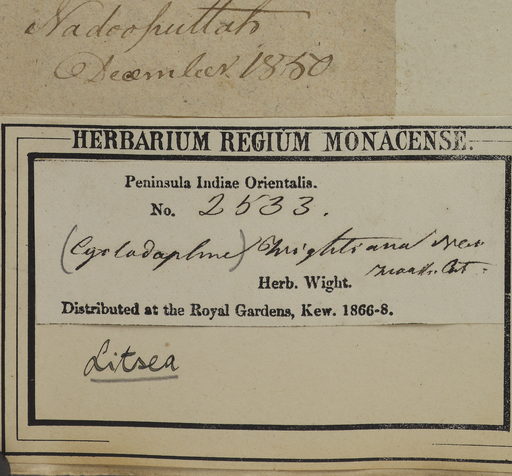 Nadooputtah
December 1850
HERBARIUM REGIUM MONACENSE.
Peninsula Indiae Orientalis.
No. 2533.
(Cyclodaphne) Wightiana Nees
Herb. Wight.
Distributed at the Royal Gardens, Kew. 1866-8.
Litsea